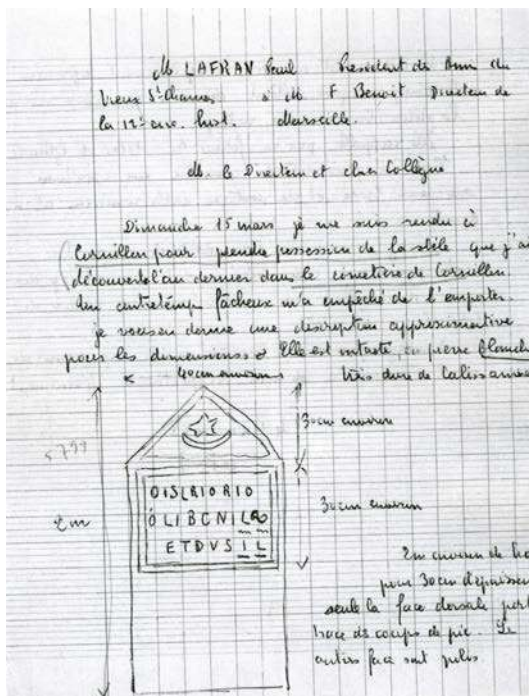 M LAFRAN Paul Président des Amis du
Vieux St Chamas à M F Benoit Directeur de
la 12e circ. hist. Marseille.
M. le Directeur et cher Collègue
Dimanche 15 mars je me suis rendu à
Cornillon pour prendre possession de la stèle que j'ai
découverte l'an dernier dans le cimetière de Cornillon
Un contretemps fâcheux m'a empêché de l'emporter.
je vous en donne une description approximative
pour les dimensions Elle est intacte, en pierre blanche
40cm environ très dure de Calissanne
30cm environ
5799
2m
DISLRIORIO
OLIBCNILRO
ETDVSIL
30cm environ
2m environ de haut
pour 30cm d'épaisseur
seule la face dorsale porte
trace de coups de pic. Les
autres face sont polies